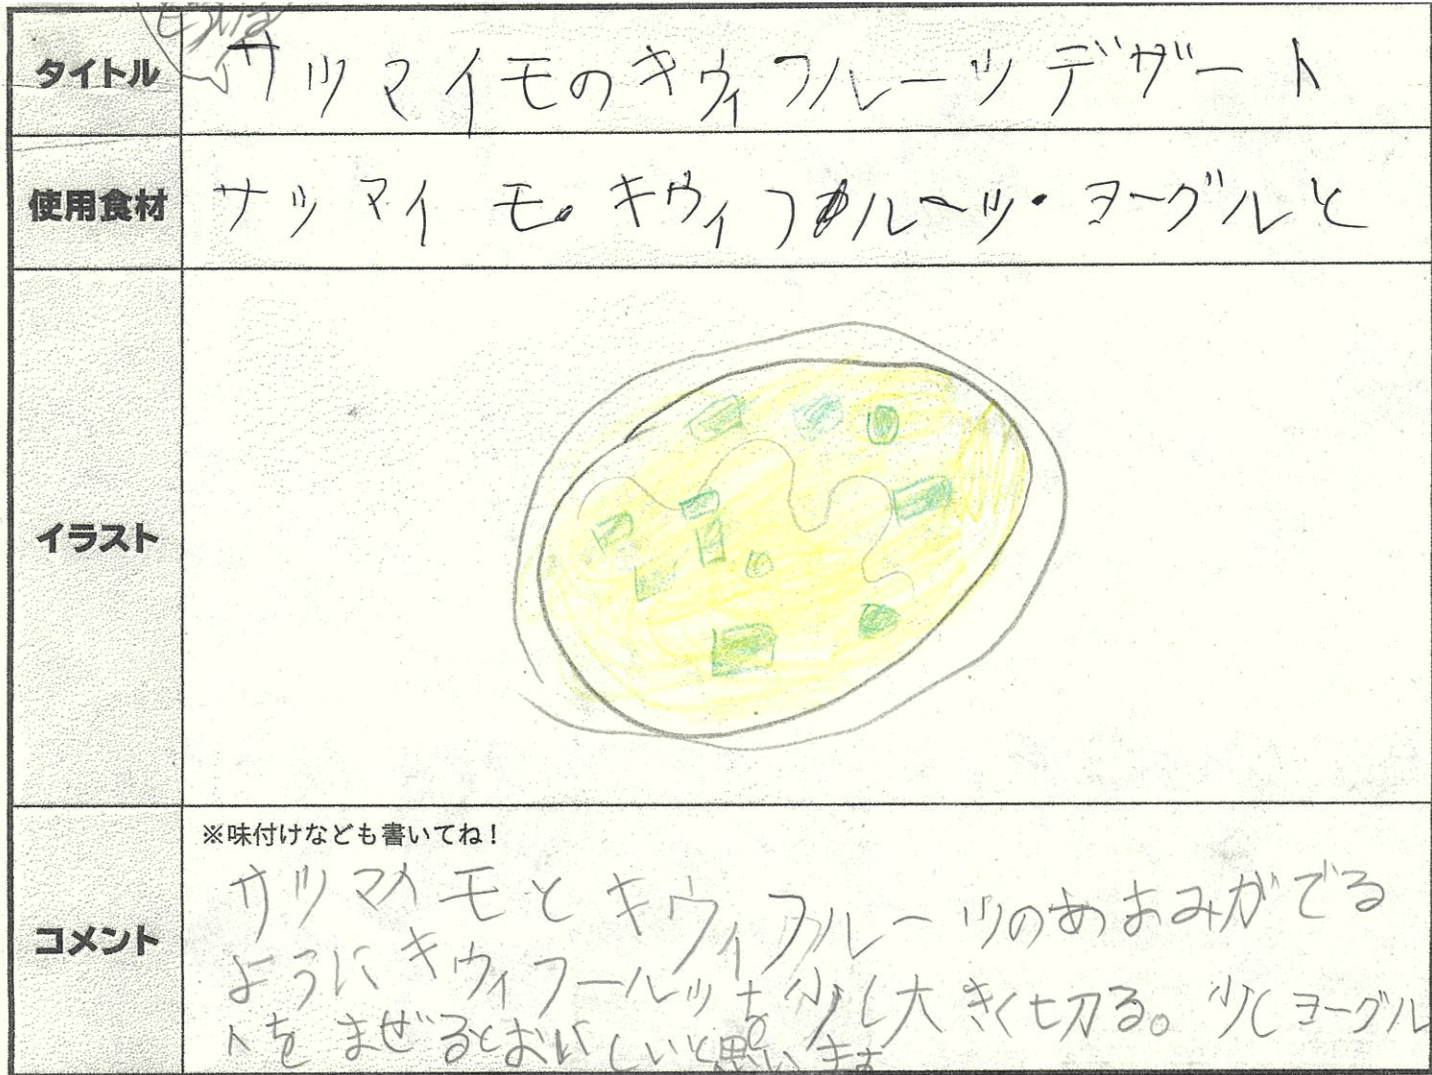 タイトル
サツマイモのキウィフルーツデザート
使用食材
サツマイモ・キウィフルーツ・ヨーグルと
イラスト
コメント
※味付けなども書いてね!
サツマイモとキウィフルーツのあまみがでる
ようにキウィフールツを少し大きく切る。少しヨーグル
トをまぜるとおいしいと思います